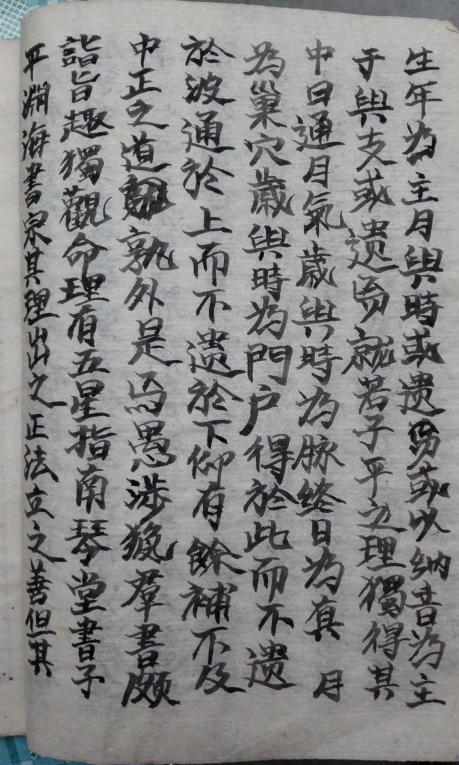 生年為主月與時或遗曷或以納音為主
于與支或遗曷就若子平之理獨得其
中日通月氣歲與時為脉终日為真月
為巢穴歲與時為門户得於此而不遗
於波通於上而不遗於下仰有餘補不及
中正之道孰外是焉愚涉猊羣書頗
詣旨趣獨觀命理有五星指南琴堂書子
平淵海書泉其理出之正法立之善但其